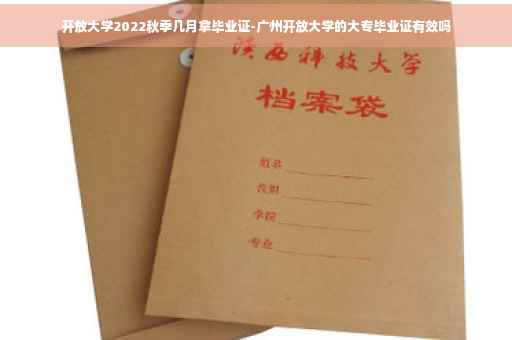 开放大学2022秋季几月拿毕业证-广州开放大学的大专毕业证有效吗
陕西科技大学
档案袋
姓名
学院
专业